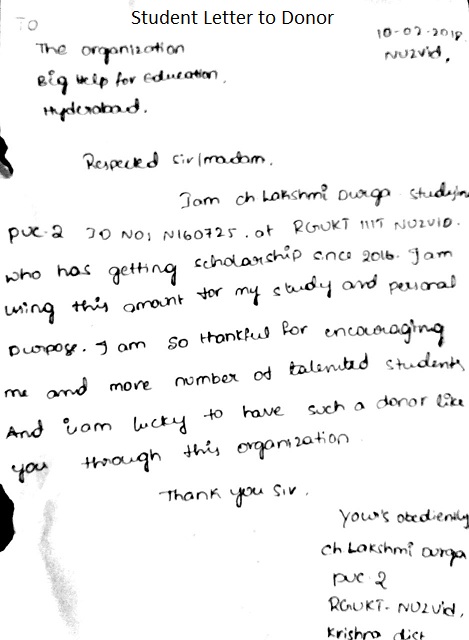 Student Letter to Donor
TO
10-02-2018
The organization
NUZVid,
Big Help for Education,
Hyderabad.
Respected Sir/madam,
I am ch Lakshmi Durga studying
PUC-2 ID NO: N160725. at RGUKT IIIT NUZVID.
who has getting scholarship since 2016. I am
using this amount for my study and personal
purpose. I am so thankful for encouraging
me and more number of talented students
And i am lucky to have such a donor like
you through this organization
Thank you Sir.
your's obediently
ch Lakshmi Durga
PUC-2
RGUKT- NUZVid,
Krishna dict